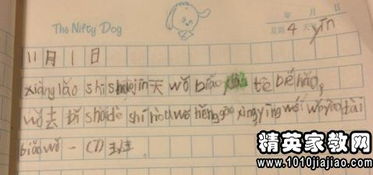 The Nifty Dog
年 月 日
星期 4 天气 yīn
11月1日
xiàng lǎo shī shuō jīn 天 wǒ biǎo tè bié hǎo,
wǒ 去 shí hòu wǒ hěn gāo xìng yīng wèi wǒ dài
biǎo wǒ 一 (7) 班.
精英家教网
www.1010jiajiao.com